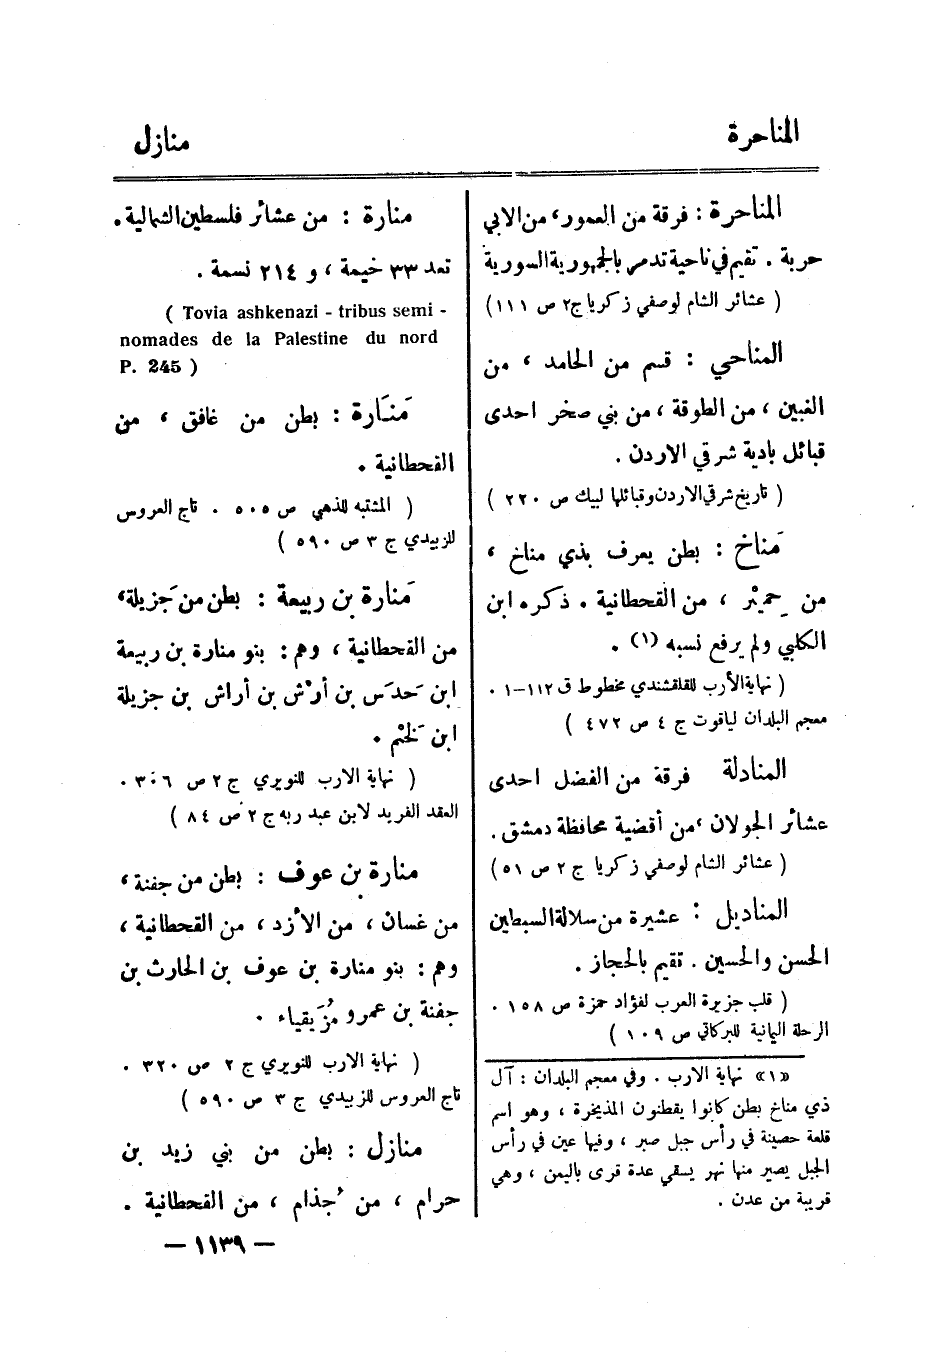 المناحرة
منازل
المناحرة : فرقة من العمور، من الابي
حربة . تقيم في ناحية تدمر بالجمهورية السورية
( عشائر الشام لوصفي زكريا ج٢ ص ١١١)
المناحي : قسم من الحامد ، من
الغبين ، من الطوقة ، من بني صخر احدى
قبائل بادية شرقي الاردن .
( تاريخ شرقي الاردن وقبائلها لبيك ص ٢٢٠ )
مَناخ : بطن يعرف بذي مناخ ،
من حِمْيَر ، من القحطانية . ذكره ابن
الكلبي ولم يرفع نسبه (١) .
( نهاية الأرب للقلقشندي مخطوط ق ١١٢-١ .
معجم البلدان لياقوت ج ٤ ص ٤٧٢ )
المنادلة فرقة من الفضل احدى
عشائر الجولان ، من أقضية محافظة دمشق .
( عشائر الشام لوصفي زكريا ج ٢ ص ٥١)
المناديل : عشيرة من سلالة السبطين
الحسن والحسين . تقيم بالحجاز .
( قلب جزيرة العرب لفؤاد حمزة ص ١٥٨ .
الرحلة اليمانية للبركاتي ص ١٠٩ )
«١» نهاية الارب . وفي معجم البلدان : آل
ذي مناخ بطن كانوا يقطنون المذيخرة ، وهو اسم
قلعة حصينة في رأس جبل صبر ، وفيها عين في رأس
الجبل يصير منها نهر يسقي عدة قرى باليمن ، وهي
قريبة من عدن .
منارة : من عشائر فلسطين الشمالية .
تعد ٣٣ خيمة ، و ٢١٤ نسمة .
( Tovia ashkenazi - tribus semi -
nomades de la Palestine du nord
P. 245 )
مَنَارة : بطن من غافق ، من
القحطانية .
( المشتبه للذهبي ص ٥٠٥ . تاج العروس
للزبيدي ج ٣ ص ٥٩٠ )
مَنارة بن ربيعة : بطن من جَزيلة،
من القحطانية ، وهم : بنو منارة بن ربيعة
ابن حَدَس بن أرْش بن أراش بن جزيلة
ابن لَخْم .
( نهاية الارب للنويري ج ٢ ص ٣٠٦ .
العقد الفريد لابن عبد ربه ج ٢ ص ٨٤ )
منارة بن عوف : بطن من جفنة ،
من غسان ، من الأزد ، من القحطانية ،
وهم : بنو منارة بن عوف بن الحارث بن
جفنة بن عمرو مُزَيقياء .
( نهاية الارب للنويري ج ٢ ص ٣٢٠ .
تاج العروس للزبيدي ج ٣ ص ٥٩٠ )
منازل : بطن من بني زيد بن
حرام ، من جُذام ، من القحطانية .
— ١١٣٩ —